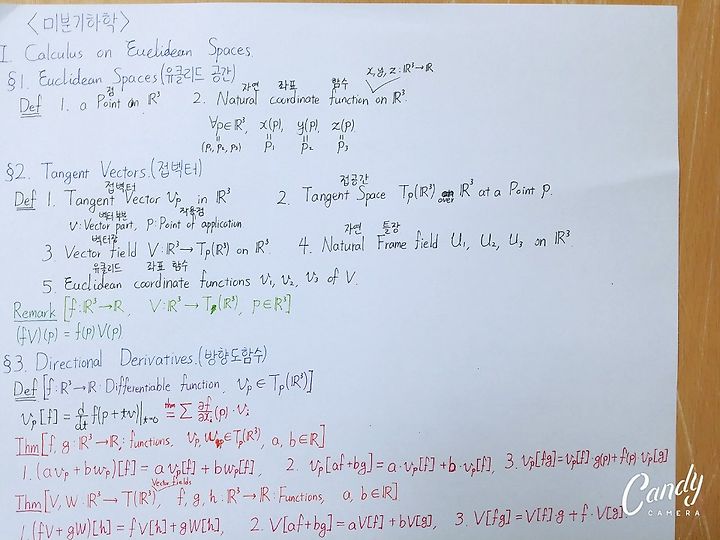 <미분기하학>
I. Calculus on Euclidean Spaces.
§1. Euclidean Spaces (유클리드 공간)
점 자연 좌표 함수 x, y, z : ℝ³→ℝ
Def 1. a Point on ℝ³ 2. Natural coordinate function on ℝ³.
∀p∈ℝ³, x(p), y(p), z(p)
= = = =
(p₁, p₂, p₃) p₁ p₂ p₃
§2. Tangent Vectors. (접벡터)
접벡터 접공간
Def 1. Tangent Vector v_p in ℝ³ 2. Tangent Space T_p(ℝ³) over ℝ³ at a Point p.
벡터 부분 작용점
v : Vector part, p : Point of application
벡터장 자연 틀장
3. Vector field V : ℝ³→T_p(ℝ³) on ℝ³. 4. Natural Frame field U₁, U₂, U₃ on ℝ³.
유클리드 좌표 함수
5. Euclidean coordinate functions v₁, v₂, v₃ of V.
Remark [f : ℝ³→ℝ, V : ℝ³→T_p(ℝ³), p∈ℝ³]
(fV)(p) = f(p)V(p)
§3. Directional Derivatives. (방향도함수)
Def [f : ℝ³→ℝ : Differentiable function, v_p ∈ T_p(ℝ³)]
v_p[f] = d/dt f(p+tv)|_{t=0} =^{thm} Σ ∂f/∂x_i (p)·v_i
Thm [f, g : ℝ³→ℝ : functions, v_p, w_p∈T_p(ℝ³), a, b∈ℝ]
1. (av_p+bw_p)[f] = av_p[f]+bw_p[f], 2. v_p[af+bg] = a·v_p[f]+b·v_p[f], 3. v_p[fg]=v_p[f]·g(p)+f(p)·v_p[g]
Vector fields
Thm [V, W : ℝ³→T(ℝ³), f, g, h : ℝ³→ℝ : Functions, a, b∈ℝ]
1. (fV+gW)[h] = fV[h]+gW[h], 2. V[af+bg] = aV[f]+bV[g], 3. V[fg]=V[f]·g+f·V[g].
Candy
CAMERA